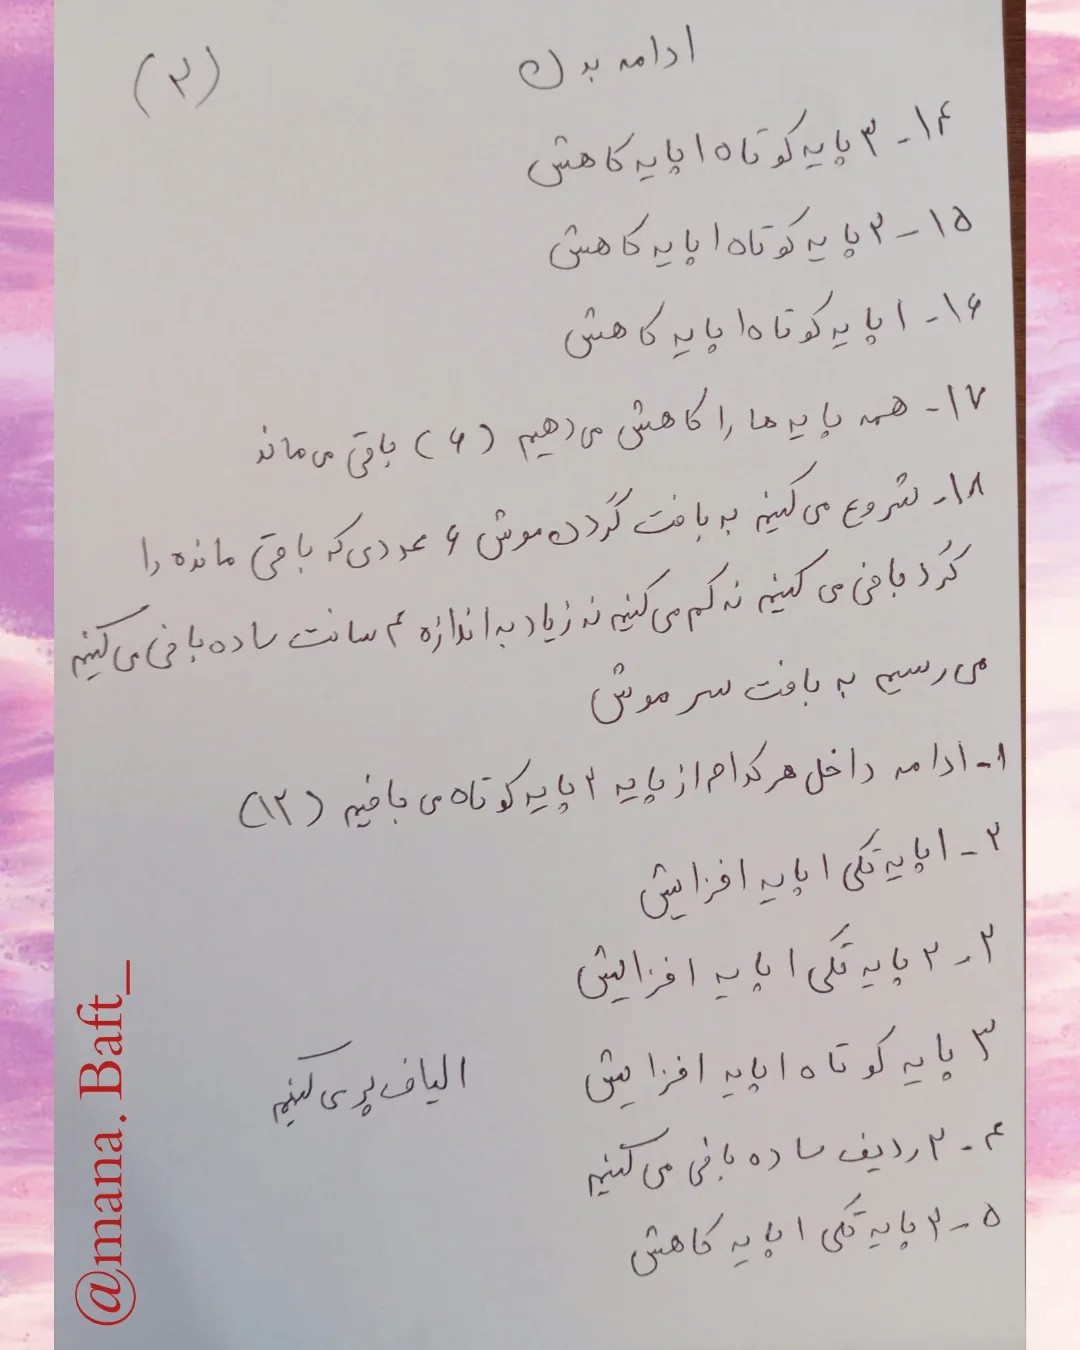 ادامه بدن
(۲)
۱۴ـ ۳ پایه کوتاه ۱ پایه کاهش
۱۵ – ۲ پایه کوتاه ۱ پایه کاهش
۱۶ـ ۱ پایه کوتاه ۱ پایه کاهش
۱۷ـ همه پایه ها را کاهش می دهیم (۶) باقی می ماند
۱۸ـ شروع می کنیم به بافت گردن موش ۶ عددی که باقی مانده را
گرد بافی می کنیم نه کم می کنیم نه زیاد به اندازه ۴ سانت ساده بافی می کنیم
می رسیم به بافت سر موش
۱ـ ادامه داخل هر کدام از پایه ۲ پایه کوتاه می بافیم (۱۲)
۲ – ۱ پایه تکی ۱ پایه افزایش
۳ – ۲ پایه تکی ۱ پایه افزایش
۳ پایه کوتاه ۱ پایه افزایش
الیاف پر می کنیم
۴ – ۲ ردیف ساده بافی می کنیم
۵ – ۳ پایه تکی ۱ پایه کاهش
@mana. Baft_